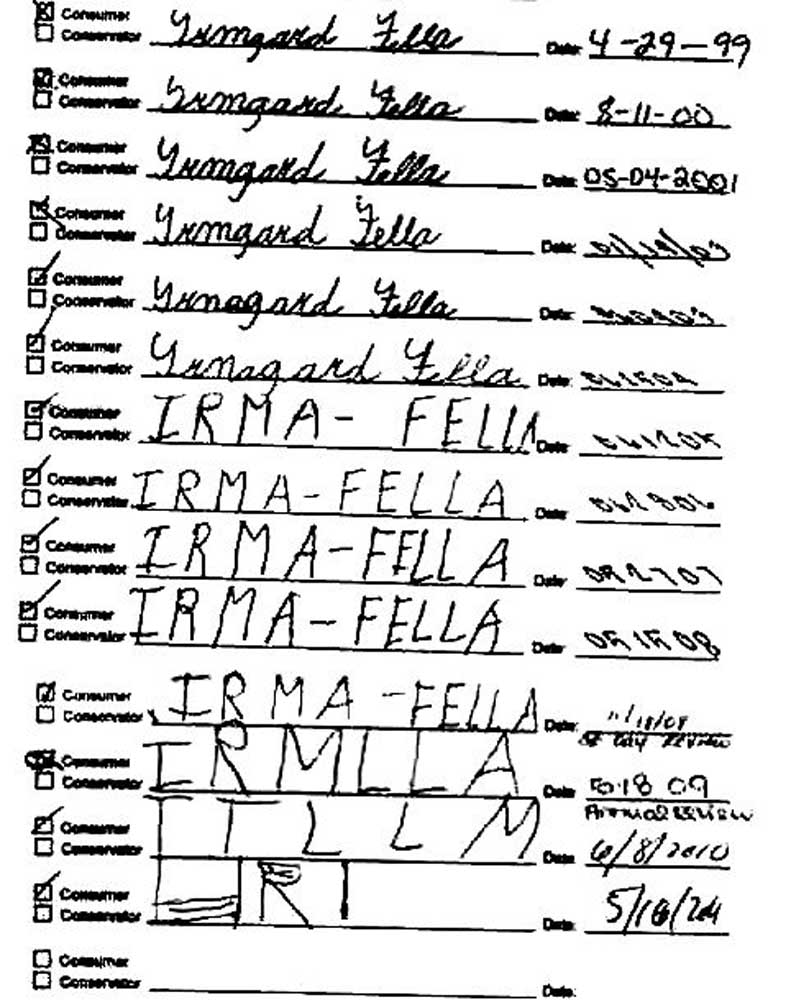 ☒ Consumer
☐ Conservator Yrmgard Fella Date: 4-29-99
☒ Consumer
☐ Conservator Yrmgard Fella Date: 8-11-00
☒ Consumer
☐ Conservator Yrmgard Fella Date: 05-04-2001
☒ Consumer
☐ Conservator Yrmgard Fella Date:
☑ Consumer
☐ Conservator Yrnagard Fella Date:
☑ Consumer
☐ Conservator Yrnagard Fella Date:
☑ Consumer
☐ Conservator IRMA- FELLA Date:
☑ Consumer
☐ Conservator IRMA-FELLA Date:
☑ Consumer
☐ Conservator IRMA-FELLA Date:
☑ Consumer
☐ Conservator IRMA-FELLA Date: 05 15 08
☑ Consumer
☐ Conservator IRMA-FELLA Date: 11/18/08
Review
☒ Consumer
☐ Conservator IRMLLA Date: 5-18 09
Annual Review
☑ Consumer
☐ Conservator I T L L M Date: 6/8/2010
☑ Consumer
☐ Conservator R I Date:
☐ Consumer
☐ Conservator Date: